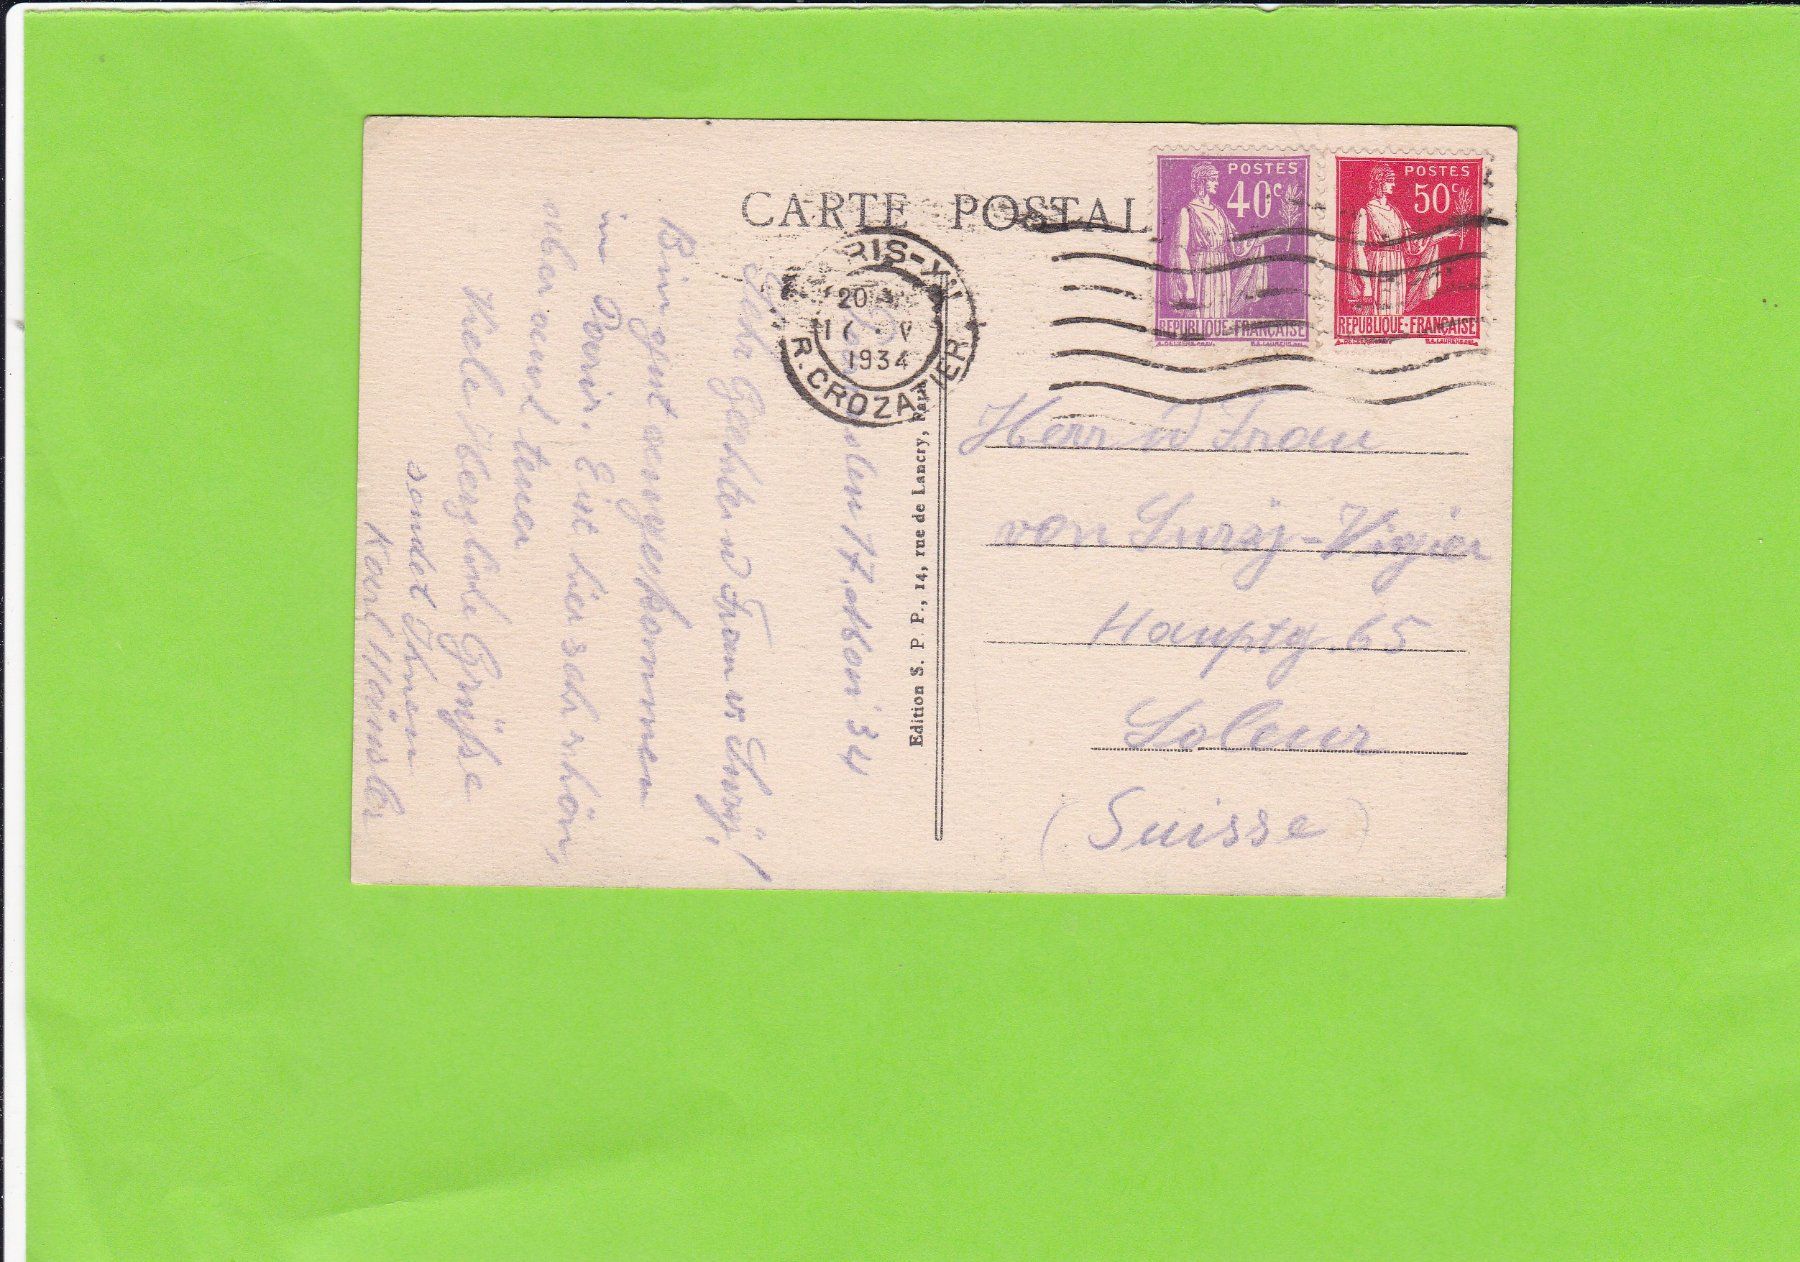 CARTE POSTAL
POSTES
40c
REPUBLIQUE-FRANÇAISE
POSTES
50c
REPUBLIQUE-FRANÇAISE
RIS-XII
20
17 · V
1934
R. CROZATIER
17. Mai 34
Sehr Geehrter Frau v Surÿ!
Bin gut angekommen
in Paris. Es ist hier sehr schön,
aber auch teuer
Viele Herzliche Grüsse
sendet Ihnen
Karl
Edition S. P. P., 14, rue de Lancry, Paris
Herr u Frau
von Surÿ-Vigier
Hauptg. 65
Soleur
(Suisse)